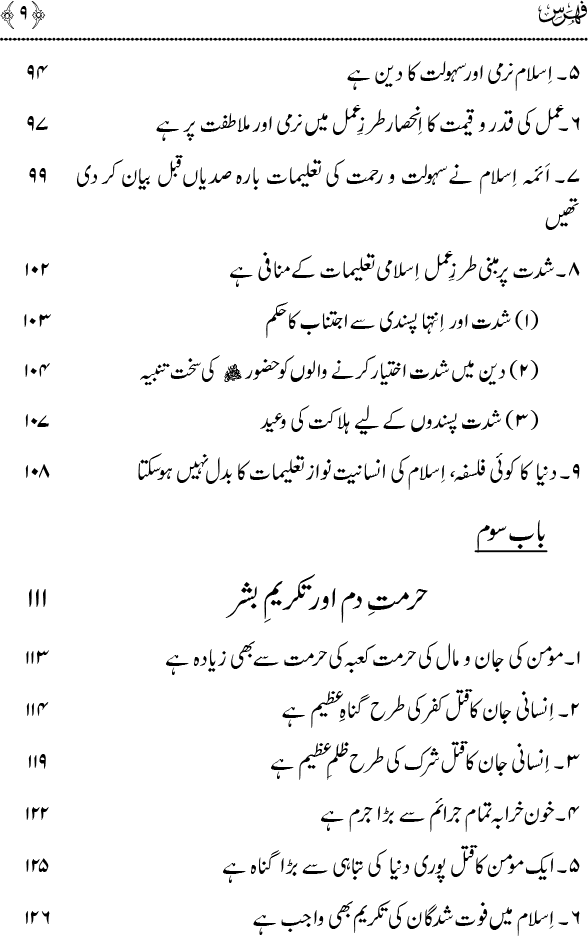 فہرس ﴿۹﴾
۵۔ اِسلام نرمی اور سہولت کا دین ہے ۹۴
۶۔ عمل کی قدر و قیمت کا اِنحصار طرزِ عمل میں نرمی اور ملاطفت پر ہے ۹۷
۷۔ اَئمہ اِسلام نے سہولت و رحمت کی تعلیمات بارہ صدیاں قبل بیان کر دی ۹۹
تھیں
۸۔ شدت پر مبنی طرزِ عمل اِسلامی تعلیمات کے منافی ہے ۱۰۲
(۱) شدت اور اِنتہا پسندی سے اجتناب کا حکم ۱۰۳
(۲) دین میں شدت اختیار کرنے والوں کو حضور ﷺ کی سخت تنبیہ ۱۰۴
(۳) شدت پسندوں کے لیے ہلاکت کی وعید ۱۰۷
۹۔ دنیا کا کوئی فلسفہ، اِسلام کی انسانیت نواز تعلیمات کا بدل نہیں ہوسکتا ۱۰۸
باب سوم
حرمتِ دم اور تکریمِ بشر ۱۱۱
۱۔ مومن کی جان و مال کی حرمت کعبہ کی حرمت سے بھی زیادہ ہے ۱۱۳
۲۔ اِنسانی جان کا قتل کفر کی طرح گناہِ عظیم ہے ۱۱۴
۳۔ اِنسانی جان کا قتل شرک کی طرح ظلمِ عظیم ہے ۱۱۹
۴۔ خون خرابہ تمام جرائم سے بڑا جرم ہے ۱۲۲
۵۔ ایک مومن کا قتل پوری دنیا کی تباہی سے بڑا گناہ ہے ۱۲۵
۶۔ اِسلام میں فوت شدگان کی تکریم بھی واجب ہے ۱۲۶